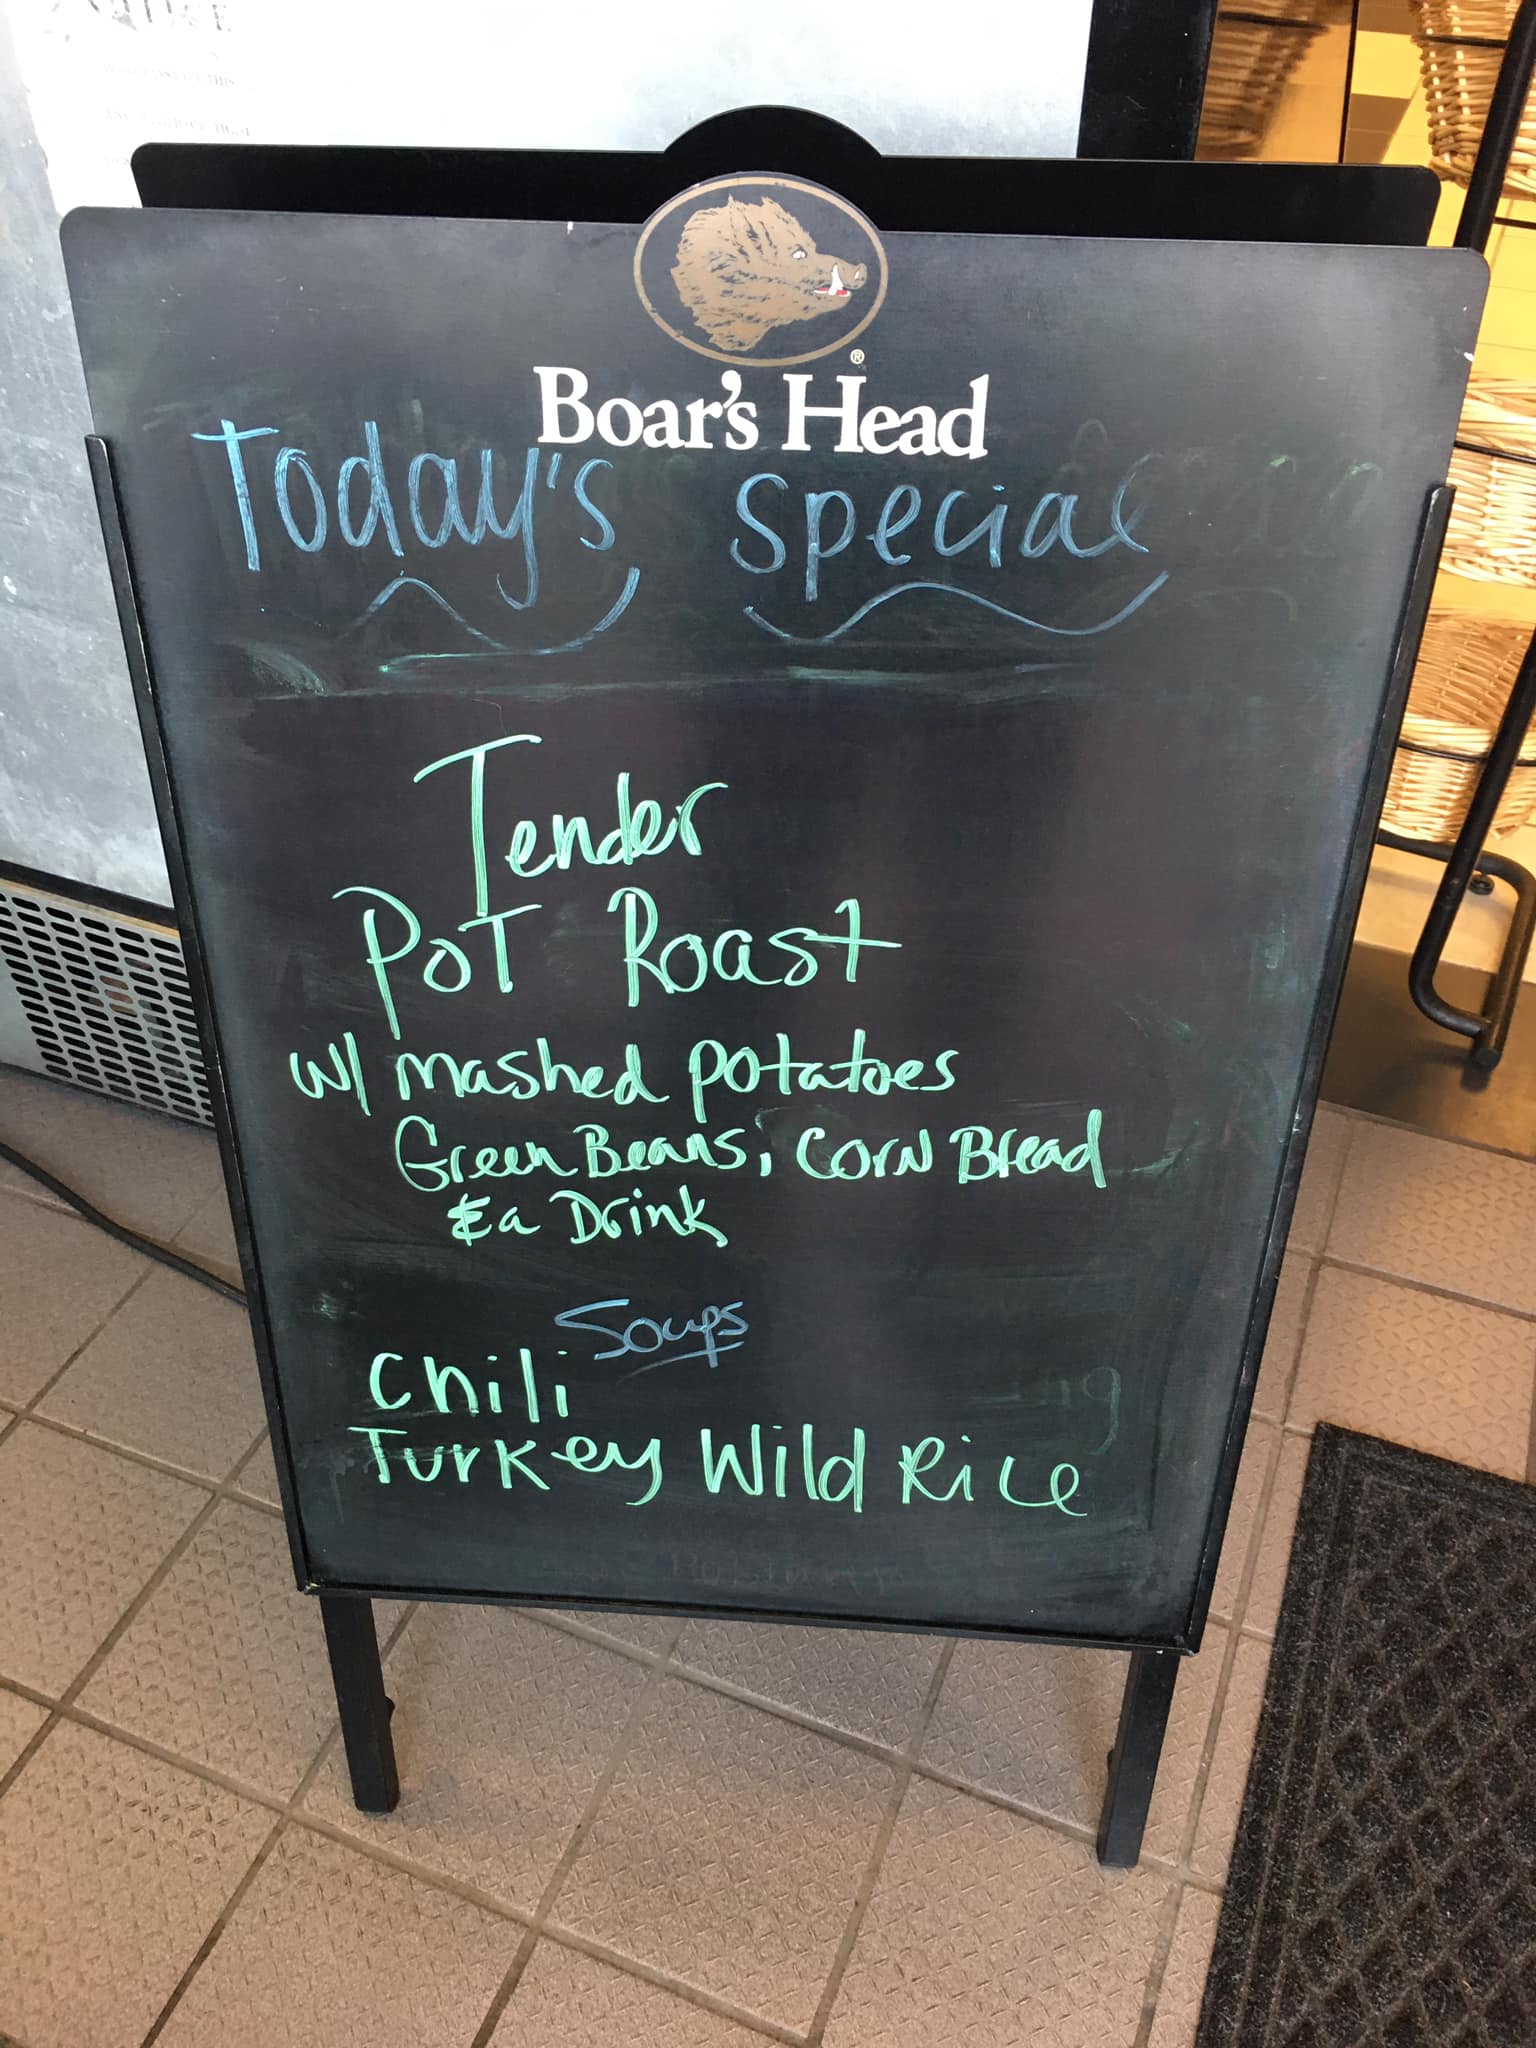 Boar's Head
®
Today's special
Tender
Pot Roast
w/ mashed potatoes
Green Beans, Corn Bread
& a Drink
Soups
Chili
Turkey Wild Rice